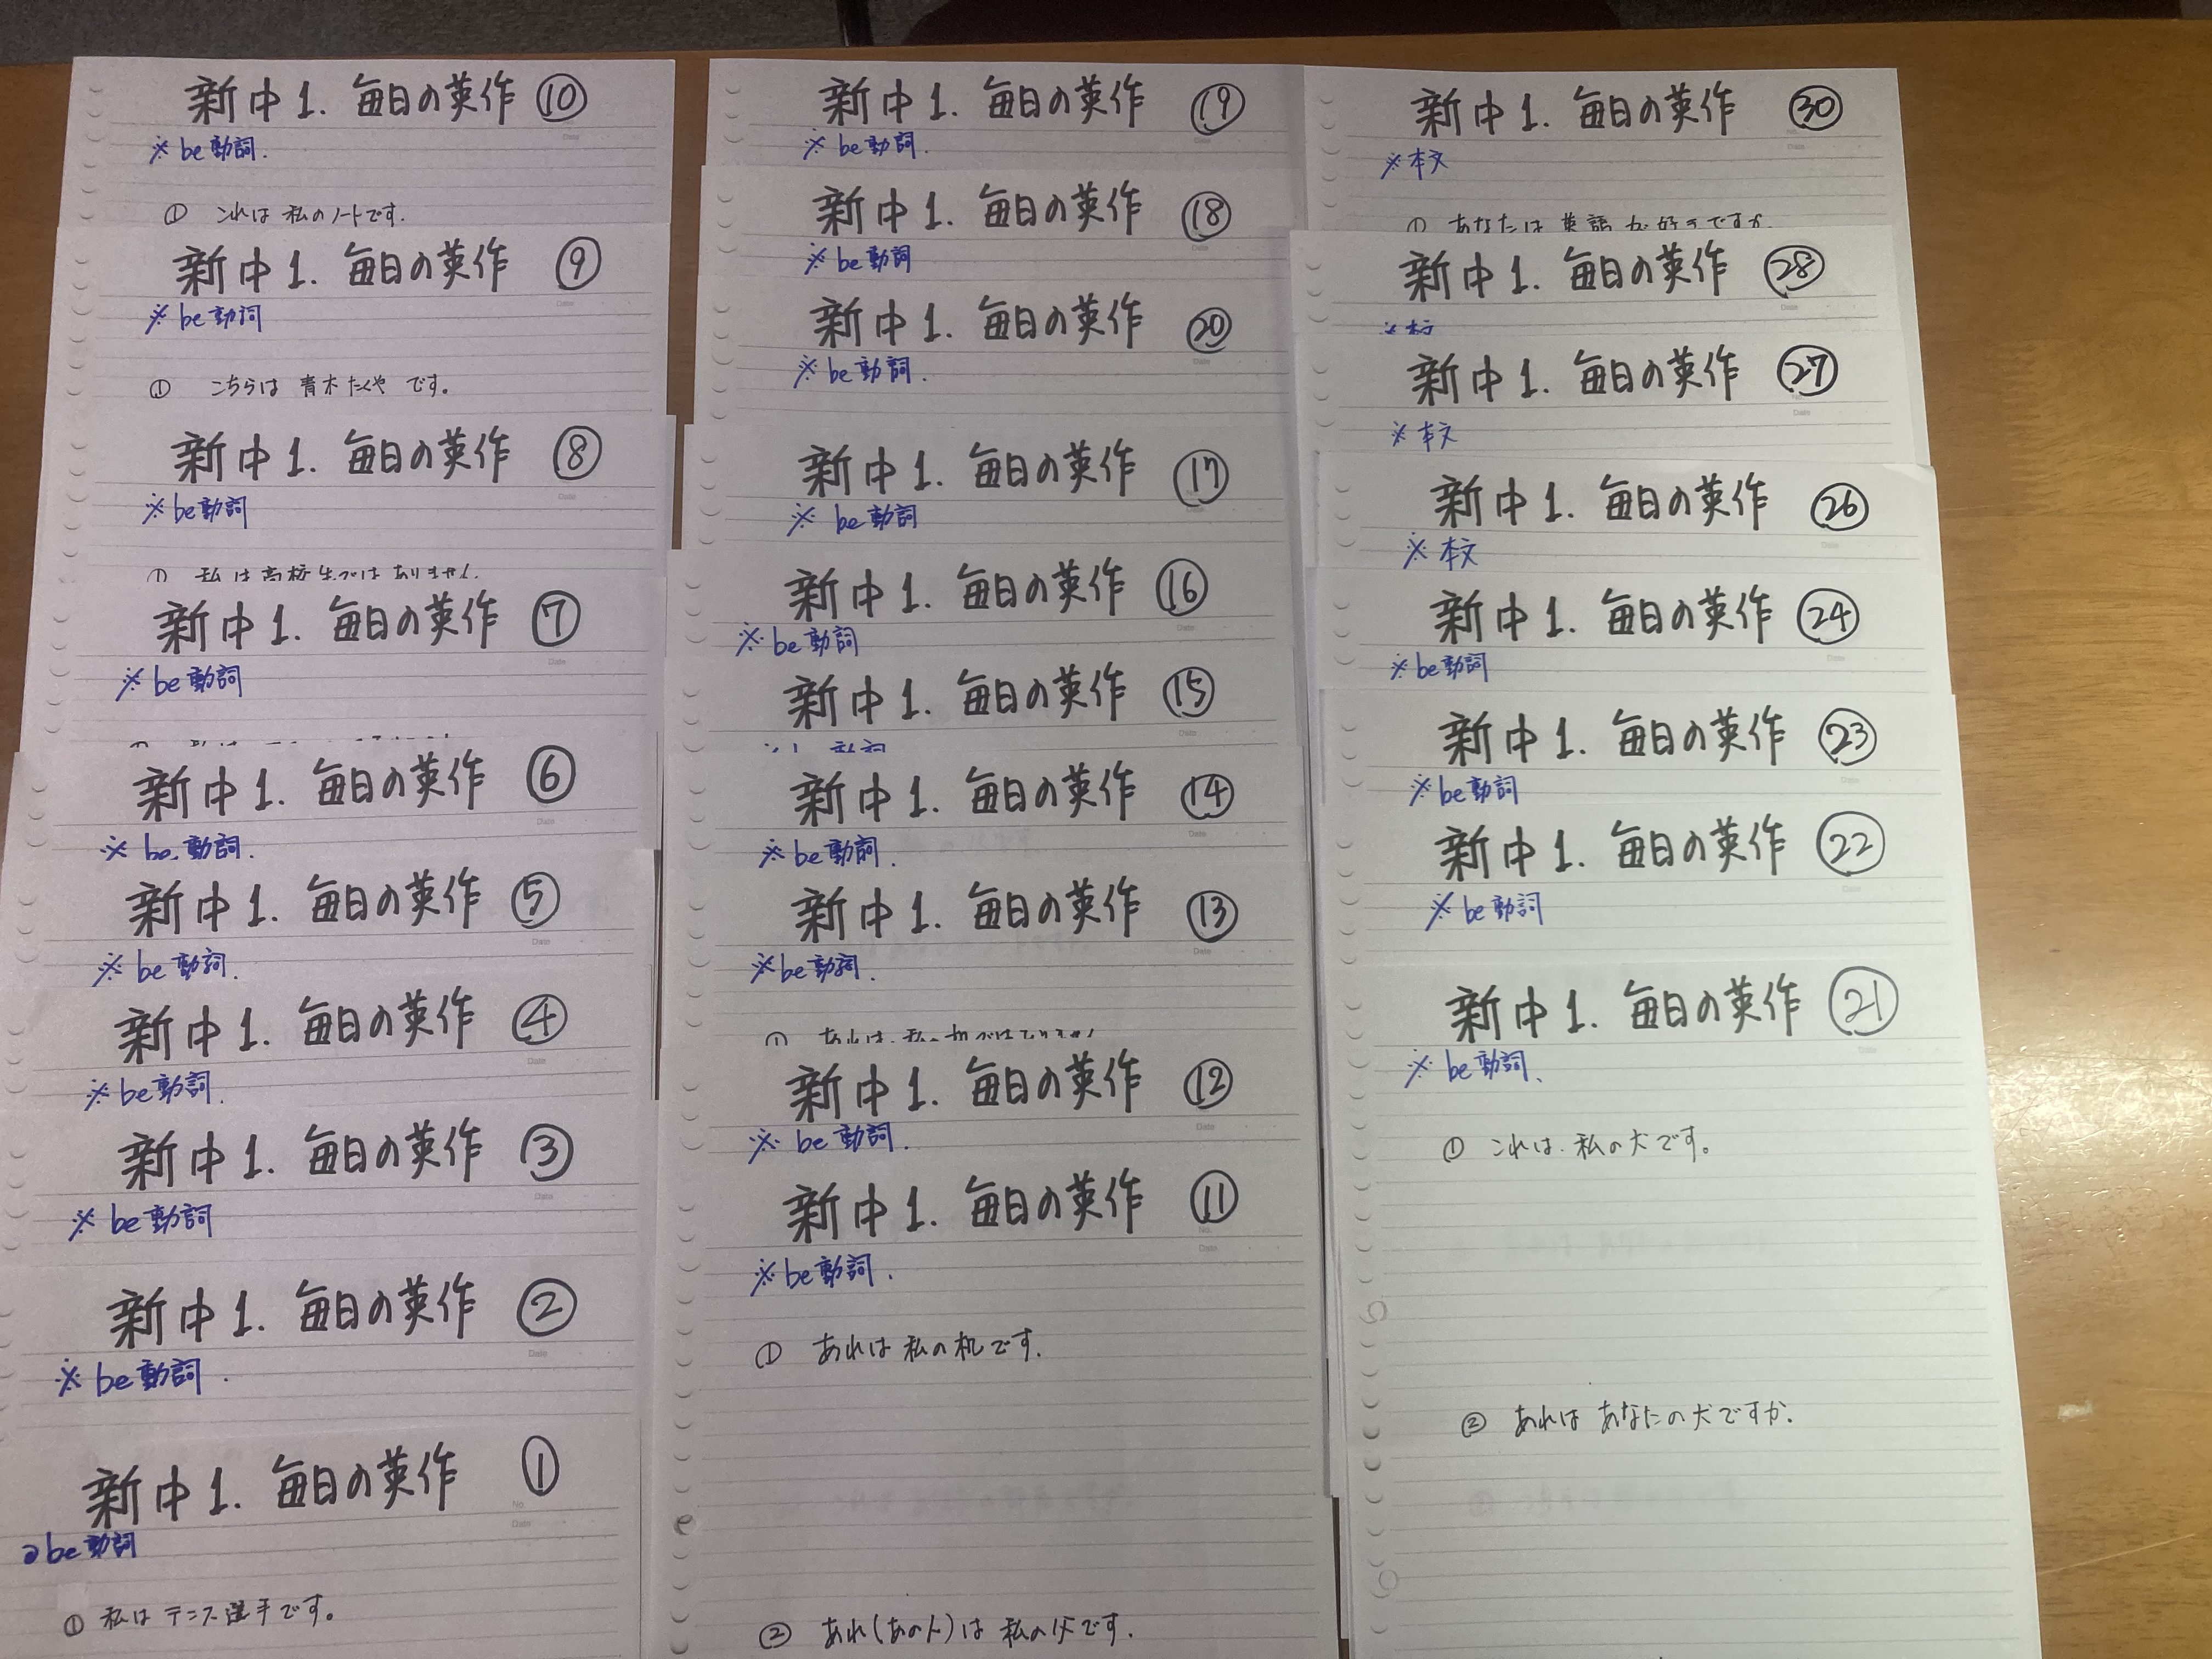 新中1. 毎日の英作 ⑩
※ be動詞.
① これは 私のノートです.
新中1. 毎日の英作 ⑨
※ be動詞
① こちらは 青木たくや です。
新中1. 毎日の英作 ⑧
※ be動詞
① 私は高校生ではありません.
新中1. 毎日の英作 ⑦
※ be動詞
新中1. 毎日の英作 ⑥
※ be.動詞.
新中1. 毎日の英作 ⑤
※ be動詞.
新中1. 毎日の英作 ④
※ be動詞.
新中1. 毎日の英作 ③
※ be動詞
新中1. 毎日の英作 ②
※ be動詞.
新中1. 毎日の英作 ①
No.
Date
be動詞
① 私は テニス選手です。
新中1. 毎日の英作 ⑲
※ be動詞.
新中1. 毎日の英作 ⑱
※ be動詞
新中1. 毎日の英作 ⑳
※ be動詞.
新中1. 毎日の英作 ⑰
※ be動詞
新中1. 毎日の英作 ⑯
※ be動詞
新中1. 毎日の英作 ⑮
新中1. 毎日の英作 ⑭
※ be動詞.
新中1. 毎日の英作 ⑬
※ be動詞.
新中1. 毎日の英作 ⑫
※ be動詞.
新中1. 毎日の英作 ⑪
No.
Date
※ be動詞.
① あれは 私の机です.
② あれ(あの人)は 私の父です.
新中1. 毎日の英作 ㉚
Date
※ 本文
① あなたは 英語 が 好きですか.
新中1. 毎日の英作 ㉘
Date
※ 本文
新中1. 毎日の英作 ㉗
Date
※ 本文
新中1. 毎日の英作 ㉖
Date
※ 本文
新中1. 毎日の英作 ㉔
Date
※ be動詞
新中1. 毎日の英作 ㉓
Date
※ be動詞
新中1. 毎日の英作 ㉒
Date
※ be動詞
新中1. 毎日の英作 ㉑
Date
※ be動詞、
① これは. 私の犬です。
② あれは あなたの犬ですか.